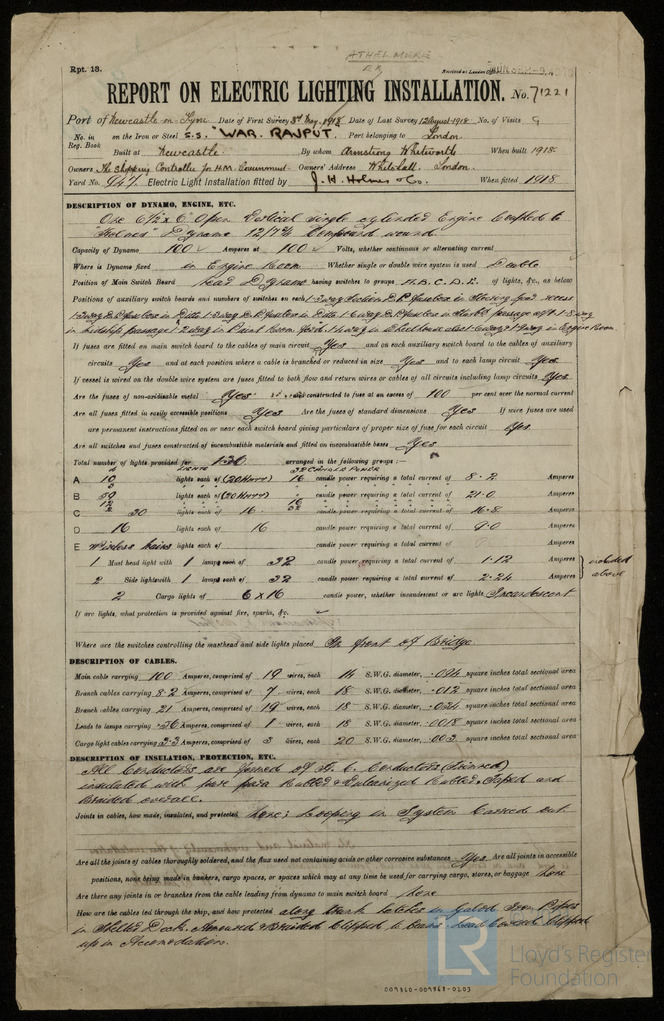 ATHELMERE
EX
Rpt. 13.
Received at London Office
REPORT ON ELECTRIC LIGHTING INSTALLATION. No. 71221
Port of Newcastle on Tyne Date of First Survey 3rd May 1918 Date of Last Survey 12 August 1918 No. of Visits 9
No. in Reg. Book on the Iron or Steel S.S. "WAR RAJPUT" Port belonging to London
Built at Newcastle By whom Armstrong Whitworth When built 1918
Owners The Shipping Controller for H.M. Government Owners' Address Whitehall, London
Yard No. 947 Electric Light Installation fitted by J. H. Holmes & Co. When fitted 1918
DESCRIPTION OF DYNAMO, ENGINE, ETC.
One 6½ x 6" Open Vertical single cylinder Engine Coupled to
"Holmes" Dynamo Compound wound
Capacity of Dynamo 100 Amperes at 100 Volts, whether continuous or alternating current
Where is Dynamo fixed in Engine Room Whether single or double wire system is used Double
Position of Main Switch Board near Dynamo having switches to groups A.B.C.D.E. of lights, &c., as below
Positions of auxiliary switch boards and numbers of switches on each
in Paint Room in Wheelhouse in Engine Room
If fuses are fitted on main switch board to the cables of main circuit Yes and on each auxiliary switch board to the cables of auxiliary
circuits Yes and at each position where a cable is branched or reduced in size Yes and to each lamp circuit Yes
If vessel is wired on the double wire system are fuses fitted to both flow and return wires or cables of all circuits including lamp circuits Yes
Are the fuses of non-oxidizable metal Yes and constructed to fuse at an excess of 100 per cent over the normal current
Are all fuses fitted in easily accessible positions Yes Are the fuses of standard dimensions Yes If wire fuses are used
are permanent instructions fitted on or near each switch board giving particulars of proper size of fuse for each circuit Yes
Are all switches and fuses constructed of incombustible materials and fitted on incombustible bases Yes
Total number of lights provided for arranged in the following groups :—
A 10 lights each of (20 Watt) 16 candle power requiring a total current of 8.2 Amperes
B lights each of (20 Watt) 16 candle power requiring a total current of 21.0 Amperes
C 30 lights each of 16 candle power requiring a total current of 16.8 Amperes
D 16 lights each of 16 candle power requiring a total current of 9.0 Amperes
E Wireless mains lights each of candle power requiring a total current of Amperes
1 Mast head light with 1 lamps each of 32 candle power requiring a total current of 1.12 Amperes
2 Side lights with 1 lamps each of 32 candle power requiring a total current of 2.24 Amperes
included above
2 Cargo lights of 6 x 16 candle power, whether incandescent or arc lights Incandescent
If arc lights, what protection is provided against fire, sparks, &c.
Where are the switches controlling the masthead and side lights placed In front of Bridge
DESCRIPTION OF CABLES.
Main cable carrying 100 Amperes, comprised of 19 wires, each 14 S.W.G. diameter, .094 square inches total sectional area
Branch cables carrying 8.2 Amperes, comprised of 7 wires, each 18 S.W.G. diameter, .012 square inches total sectional area
Branch cables carrying 21 Amperes, comprised of 19 wires, each 18 S.W.G. diameter, .034 square inches total sectional area
Leads to lamps carrying .56 Amperes, comprised of 1 wires, each 18 S.W.G. diameter, .0018 square inches total sectional area
Cargo light cables carrying 3.3 Amperes, comprised of 3 wires, each 20 S.W.G. diameter, .003 square inches total sectional area
DESCRIPTION OF INSULATION, PROTECTION, ETC.
All Conductors are formed of H.C. Conductors (Tinned)
insulated with pure para Rubber & Vulcanized Rubber, Taped and
Braided overall.
Joints in cables, how made, insulated, and protected None; Looping in System Carried out
Are all the joints of cables thoroughly soldered, and the flux used not containing acids or other corrosive substances Yes Are all joints in accessible
positions, none being made in bunkers, cargo spaces, or spaces which may at any time be used for carrying cargo, stores, or baggage None
Are there any joints in or branches from the cable leading from dynamo to main switch board None
How are the cables led through the ship, and how protected along in Galvd Iron Pipes
in Shelter Deck. Armoured & Braided Clipped to Lead Covered Clipped
up in Accomodation.
009860-009868-0203
LR
Lloyd's Register
Foundation